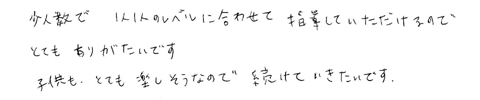 少人数で 1人1人のレベルに合わせて 指導していただけるので
とても ありがたいです
子供も、とても 楽しそうなので 続けて いきたいです.